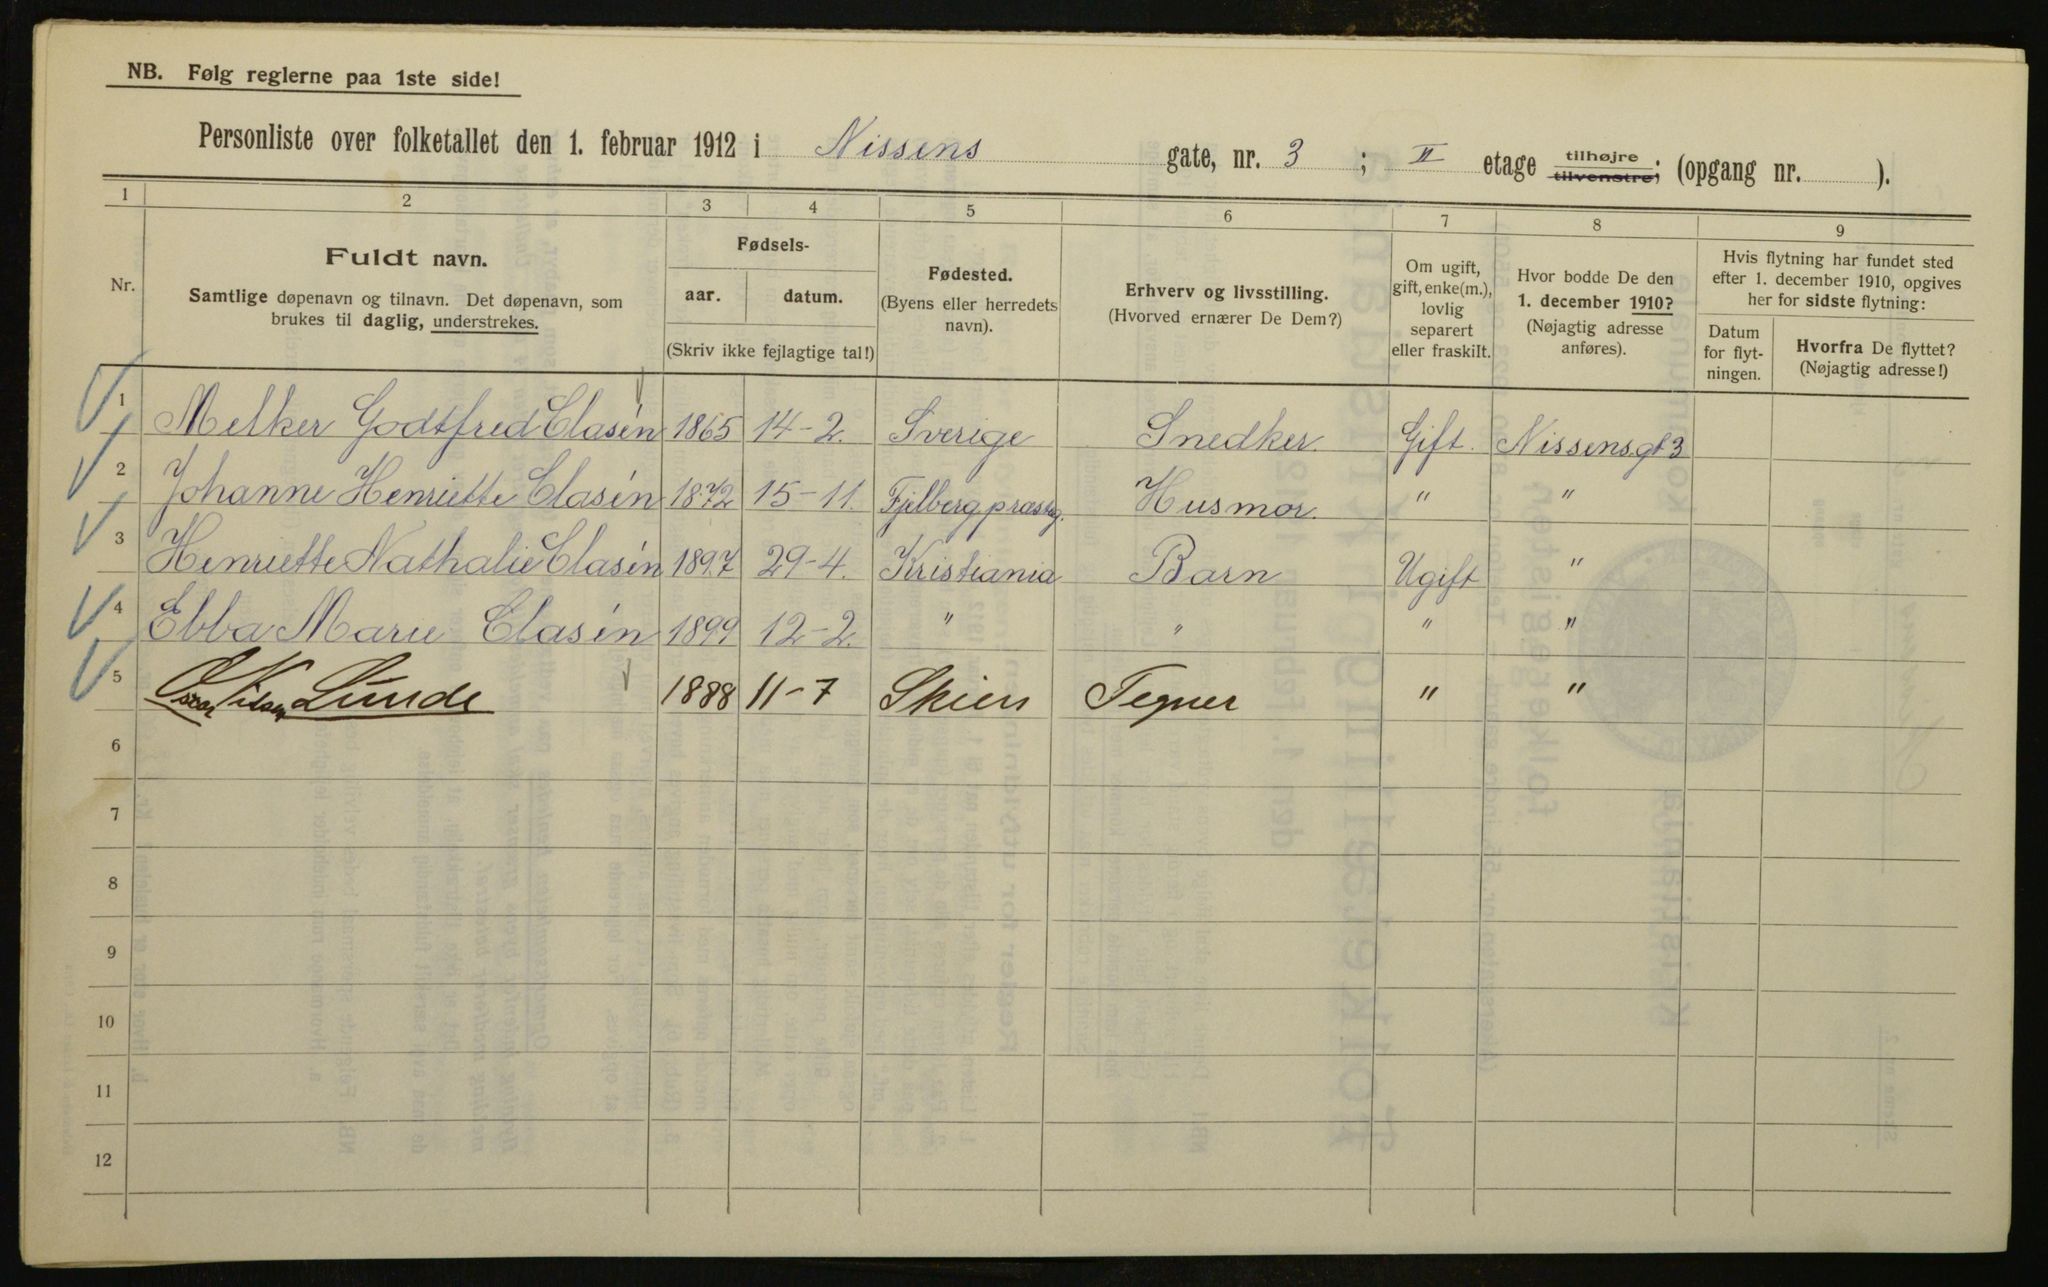 NB. Følg reglerne paa 1ste side!
Personliste over folketallet den 1. februar 1912 i Nissens gate, nr. 3 ; II etage tilhøjre tilvenstre; (opgang nr. ).
1 2 3 4 5 6 7 8 9
Nr.
Fuldt navn.
Samtlige døpenavn og tilnavn. Det døpenavn, som
brukes til daglig, understrekes.
Fødsels-
aar. datum.
(Skriv ikke fejlagtige tal!)
Fødested.
(Byens eller herredets
navn).
Erhverv og livsstilling.
(Hvorved ernærer De Dem?)
Om ugift,
gift, enke(m.),
lovlig
separert
eller fraskilt.
Hvor bodde De den
1. december 1910?
(Nøjagtig adresse
anføres).
Hvis flytning har fundet sted
efter 1. december 1910, opgives
her for sidste flytning:
Datum
for flyt-
ningen.
Hvorfra De flyttet?
(Nøjagtig adresse!)
1 Melker Godtfred Clasén 1865 14-2. Sverige Snedker. Gift. Nissens.gt 3
2 Johanne Henriette Clasén 1872 15-11. Fjelberg præstg. Husmor. " "
3 Henriette Nathalie Clasén 1897 29-4. Kristiania Barn Ugift "
4 Ebba Marie Clasén 1899 12-2. " " " "
5 Oscar Nilsen Lunde 1888 11-7 Skien Tegner " "
6
7
8
9
10
11
12